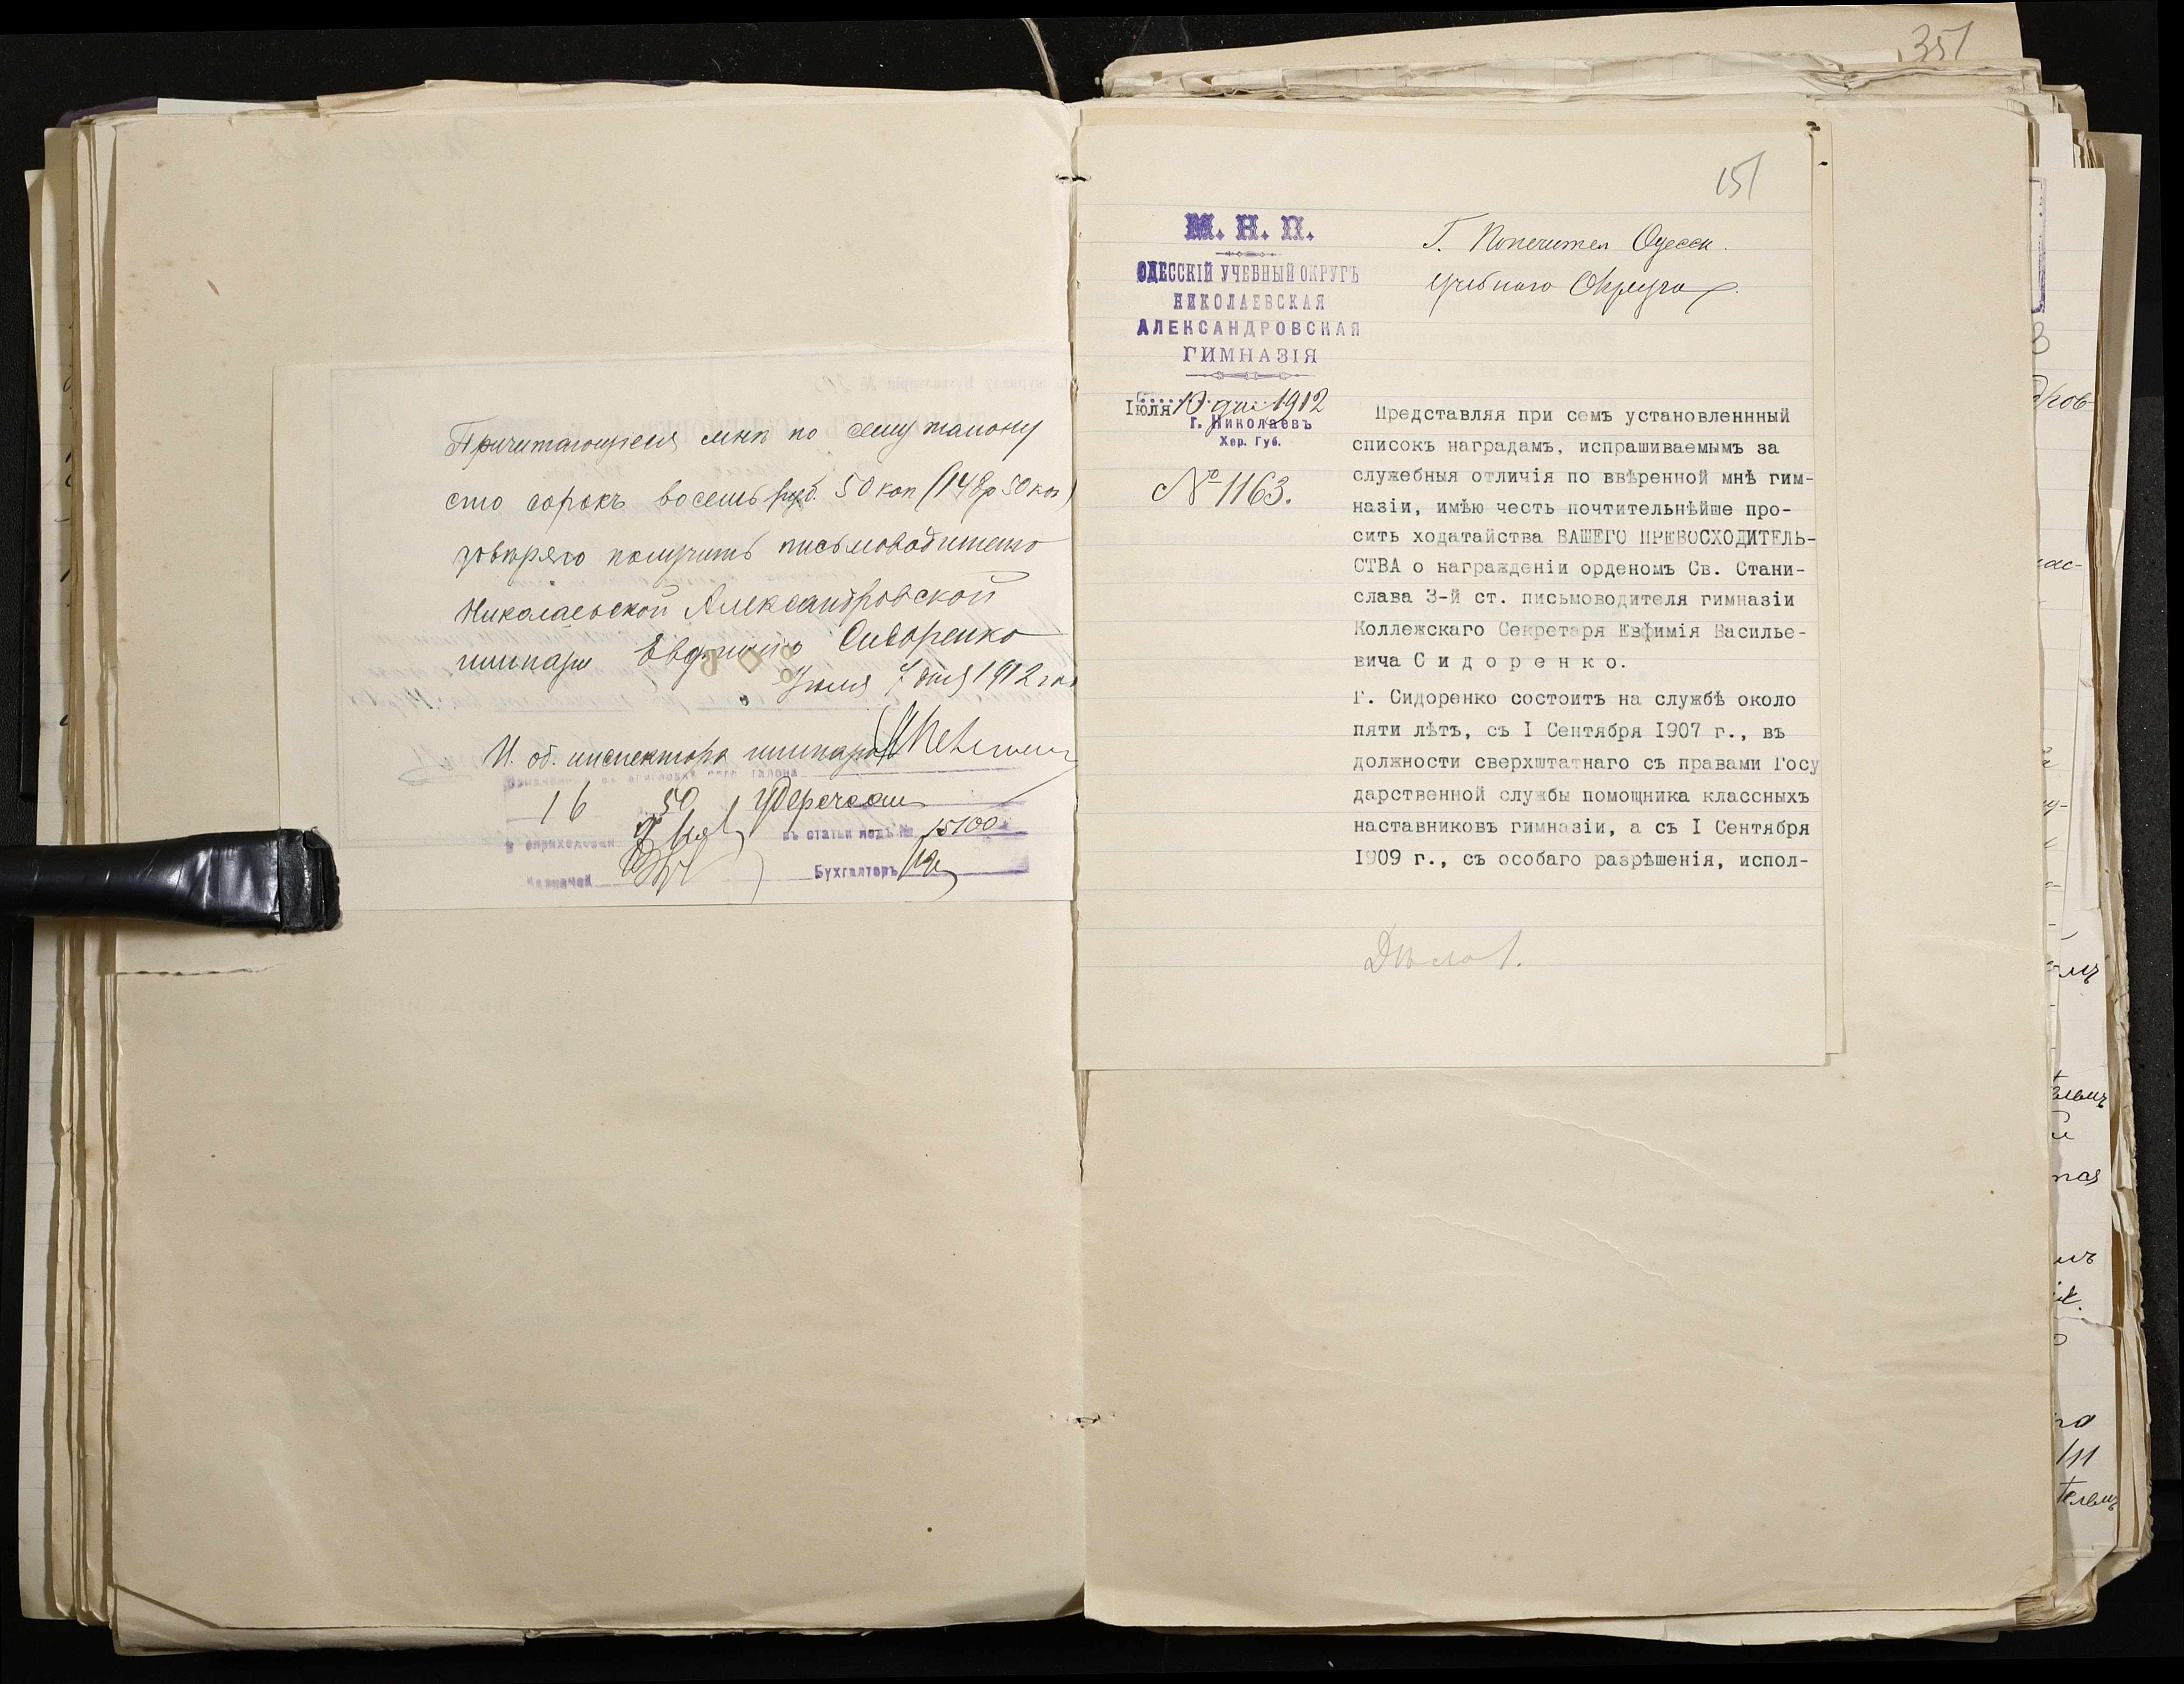 351
Причитающіеся мнѣ по сему талону
сто сорокъ восемь руб. 50 коп (148р 50 коп)
довѣряю получить письмоводителю
Николаевской Александровской
гимназіи Евфимію Сидоренко
Іюля 7 дня 1912 года
И. об. инспектора гимназіи
16 50
въ статьи подъ № 15100
Казначей
Бухгалтеръ
151
М. Н. П.
ОДЕССКІЙ УЧЕБНЫЙ ОКРУГЪ
НИКОЛАЕВСКАЯ
АЛЕКСАНДРОВСКАЯ
ГИМНАЗІЯ
Іюля 10 дня 1912
г. Николаевъ
Хер. Губ.
№ 1163.
Г. Попечител Одесск.
Учебнаго Округа.
Представляя при семъ установленнный
списокъ наградамъ, испрашиваемымъ за
служебныя отличія по ввѣренной мнѣ гим-
назіи, имѣю честь почтительнѣйше про-
сить ходатайства ВАШЕГО ПРЕВОСХОДИТЕЛЬ-
СТВА о награжденіи орденомъ Св. Стани-
слава 3-й ст. письмоводителя гимназіи
Коллежскаго Секретаря Евфимія Василье-
вича С и д о р е н к о.
Г. Сидоренко состоитъ на службѣ около
пяти лѣтъ, съ I Сентября 1907 г., въ
должности сверхштатнаго съ правами Госу
дарственной службы помощника классныхъ
наставниковъ гимназіи, а съ I Сентября
1909 г., съ особаго разрѣшенія, испол-
Дѣло 1.